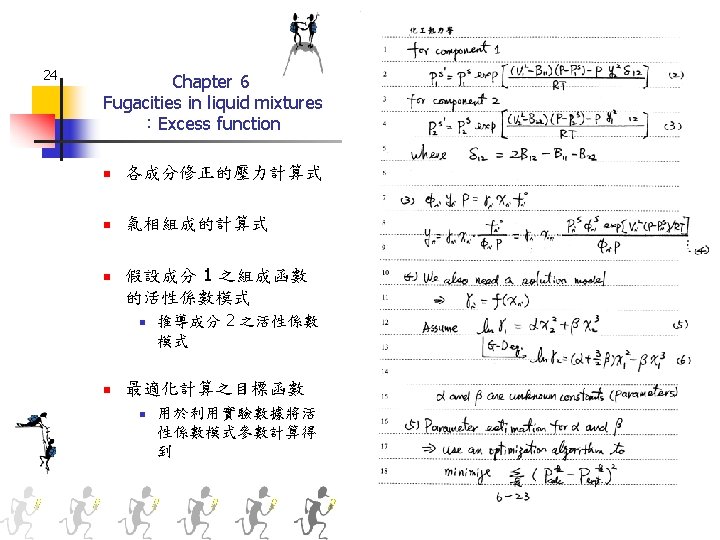 24
Chapter 6
Fugacities in liquid mixtures
：Excess function
各成分修正的壓力計算式
氣相組成的計算式
假設成分 1 之組成函數
的活性係數模式
推導成分 2 之活性係數
模式
最適化計算之目標函數
用於利用實驗數據將活
性係數模式參數計算得
到
化工熱力學
1 for component 1
2 P₁ˢ' = P₁ˢ exp[((V₁ᴸ-B₁₁)(P-P₁ˢ)-P y₂² δ₁₂)/RT] (2)
3 for component 2
4 P₂ˢ' = P₂ˢ exp[((V₂ᴸ-B₂₂)(P-P₂ˢ)-P y₁² 12)/RT] (3)
5 where δ₁₂ = 2B₁₂-B₁₁-B₂₂
6
7 (3) ϕᵢ yᵢ P = γᵢ xᵢ fᵢ°
8 yᵢ = γᵢ xᵢ fᵢ°/(ϕᵢ P) = γᵢ xᵢ Pᵢˢ ϕᵢˢ exp[Vᵢᴸ(P-Pᵢˢ)/RT]/(ϕᵢ P)
9 (4)
10 (4) We also need a solution model
11 ⇒ γᵢ = f(xᵢ)
12 Assume ln γ₁ = αx₂² + βx₂³ (5)
13 G-D eq. ln γ₂ = (α+3/2 β)x₁² - βx₁³ (6)
14
15 α and β are unknown constants (parameters)
16 (5) Parameter estimation for α and β
17 ⇒ use an optimization algorithm to
18 minimize
6-23